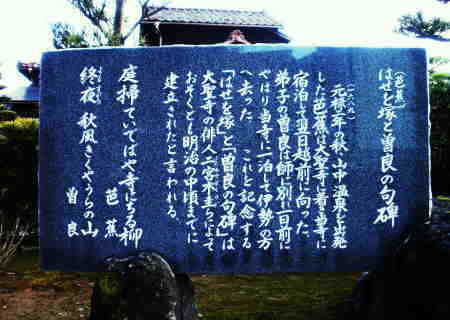 （芭蕉）
はせを塚と曽良の句碑
（一六八九）
元禄二年の秋、山中温泉を出発
した芭蕉は大聖寺に着き当寺に
宿泊して翌日越前に向った。
弟子の曽良は師に別れ一日前に
やはり当寺に一泊して伊勢の方
へ去った。これを記念する
「はせを塚」と「曽良の句碑」は
大聖寺の俳人二宮木圭らによって
おそくとも明治の中頃までに
建立されたと言われる。
庭掃いていでばや寺にちる柳
芭蕉
終夜秋風きくやうらの山
曽良